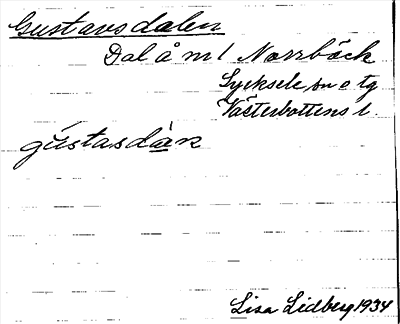 Gustavsdalen
Dal å m1 Norrbäck
Lycksele sn o tg
Västerbottens l.
gústasdàn
Lisa Lidberg 1934